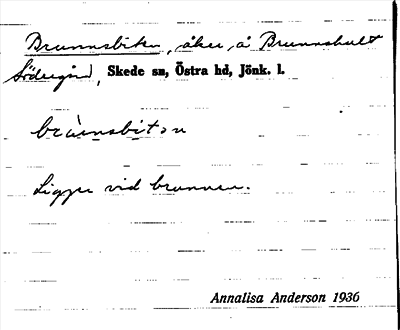 Brunnsbiten, åker, å Brunnshult
Södergård, Skede sn, Östra hd, Jönk. l.
Ligger vid brunnen.
Annalisa Anderson 1936